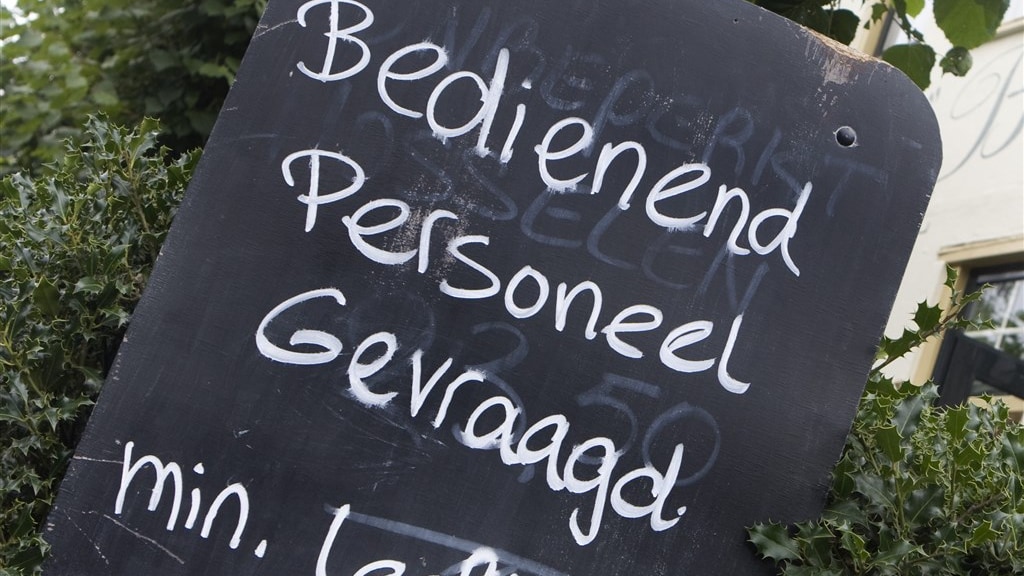 Bedienend
Personeel
Gevraagd.
min.